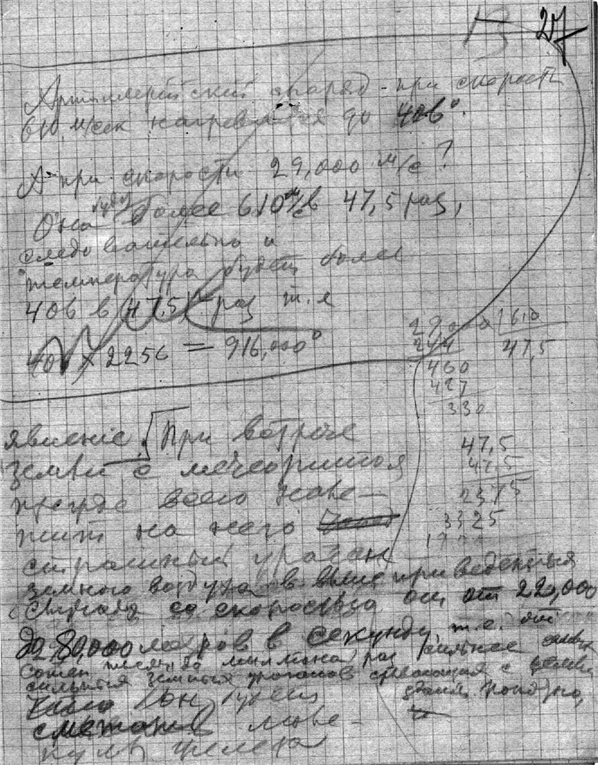 27
Артиллерийский снаряд при скорости
610 м/сек нагревается до 406°.
А при скорости 29,000 м/с?
Она будет более 610 м/с в 47,5 раз,
следовательно и
температура будет более
406 в (47,5)² раз т.е
406 × 2256 = 916,000°
29000 610
244 47,5
460
427
330
47,5
47,5
2375
3325
явление. При встрече
земли с метеоритом
прежде всего нале-
тит на него
страшный ураган
земного воздуха в выше приведенных
случаях со скоростью от 22,000
до 80,000 метров в секунду, т.е. от
сотен тысяч до миллиона раз сильнее
сильных земных ураганов
сметанье